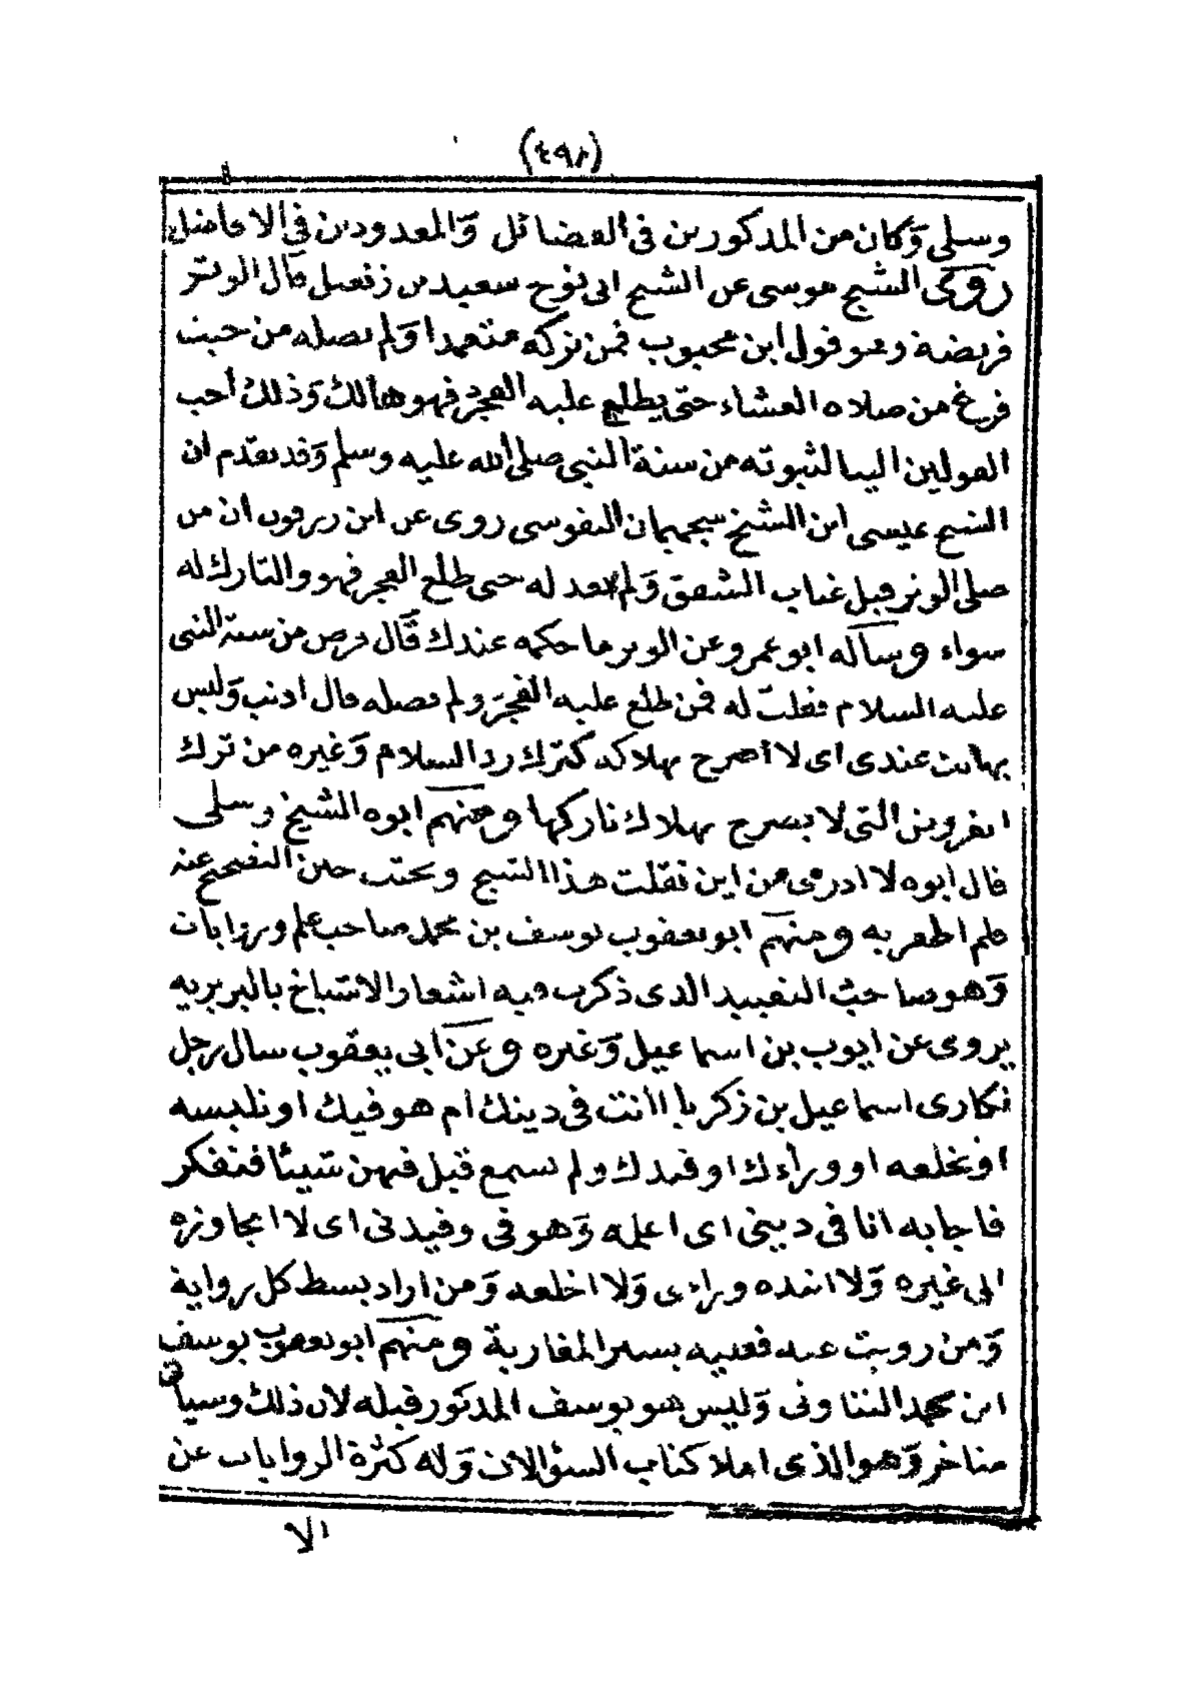 (٤٩٢)
وسلى وَكان من المذكورين فى الفضائل وَالمعدودين فى الافاضل
روى الشيخ موسى عن الشيخ ابى نوح سعيد بن زنغيل قال الوتر
فريضة وهو قول ابن محبوب فمن تركه متعمدا وَلم يصله من حيث
فرغ من صلاة العشاء حتى يطلع عليه الفجر فهو هالك وَذلك أحب
القولين الينا لثبوته من سنة النبى صلى الله عليه وسلم وَقد تقدم ان
الشيخ عيسى ابن الشيخ سجميمان النفوسى روى عن ابن زرقون ان من
صلى الوتر قبل غياب الشفق وَلم يعد له حتى طلع الفجر فهو والتارك له
سواء وسأله ابو عمرو عن الوتر ما حكمه عندك قَال فرض من سنة النبى
عليه السلام فقلت له فمن طلع عليه الفجرَ ولم يصله قال اذنب وَليس
بهالك عندى اى لا أصرح بهلاكه كترك رد السلام وَغيره من ترك
الفروض التى لا يصرح بهلاك تاركها ومنهم ابوه الشيخ وسلى
قال ابوه لا ادرى من اين نقلت هذا الشيخ وبحثت حين التفحص عنه
فلم اظفر به ومنهم ابو يعقوب يوسف بن محمد صاحب علم وروايات
وَهو صاحب التقييد الذى ذكرت فيه اشعار الاشياخ بالبربريه
يروى عن ايوب بن اسماعيل وَغيره وعَن ابى يعقوب سال رجل
نكارى اسماعيل بن زكريا اانت فى دينك ام هو فيك او تلبسه
او تخلعه او وراءك او قيدك ولم نسمع قبل فيهن شيئا فتفكر
فاجابه انا فى دينى اى اعلمه وَهو فى وقيدنى اى لا اجاوزه
الى غيره وَلا انبذه وراءى وَلا اخلعه وَمن اراد بسط كل رواية
وَمن رويت عنه فعليه بسير المغاربة ومنهم ابو يعقوب يوسف
ابن محمد التناوتى وَليس هو يوسف المذكور قبله لان ذلك وسيانى
متاخر وَهو الذى املا كتاب السؤالات وَله كثرة الروايات عن
الا